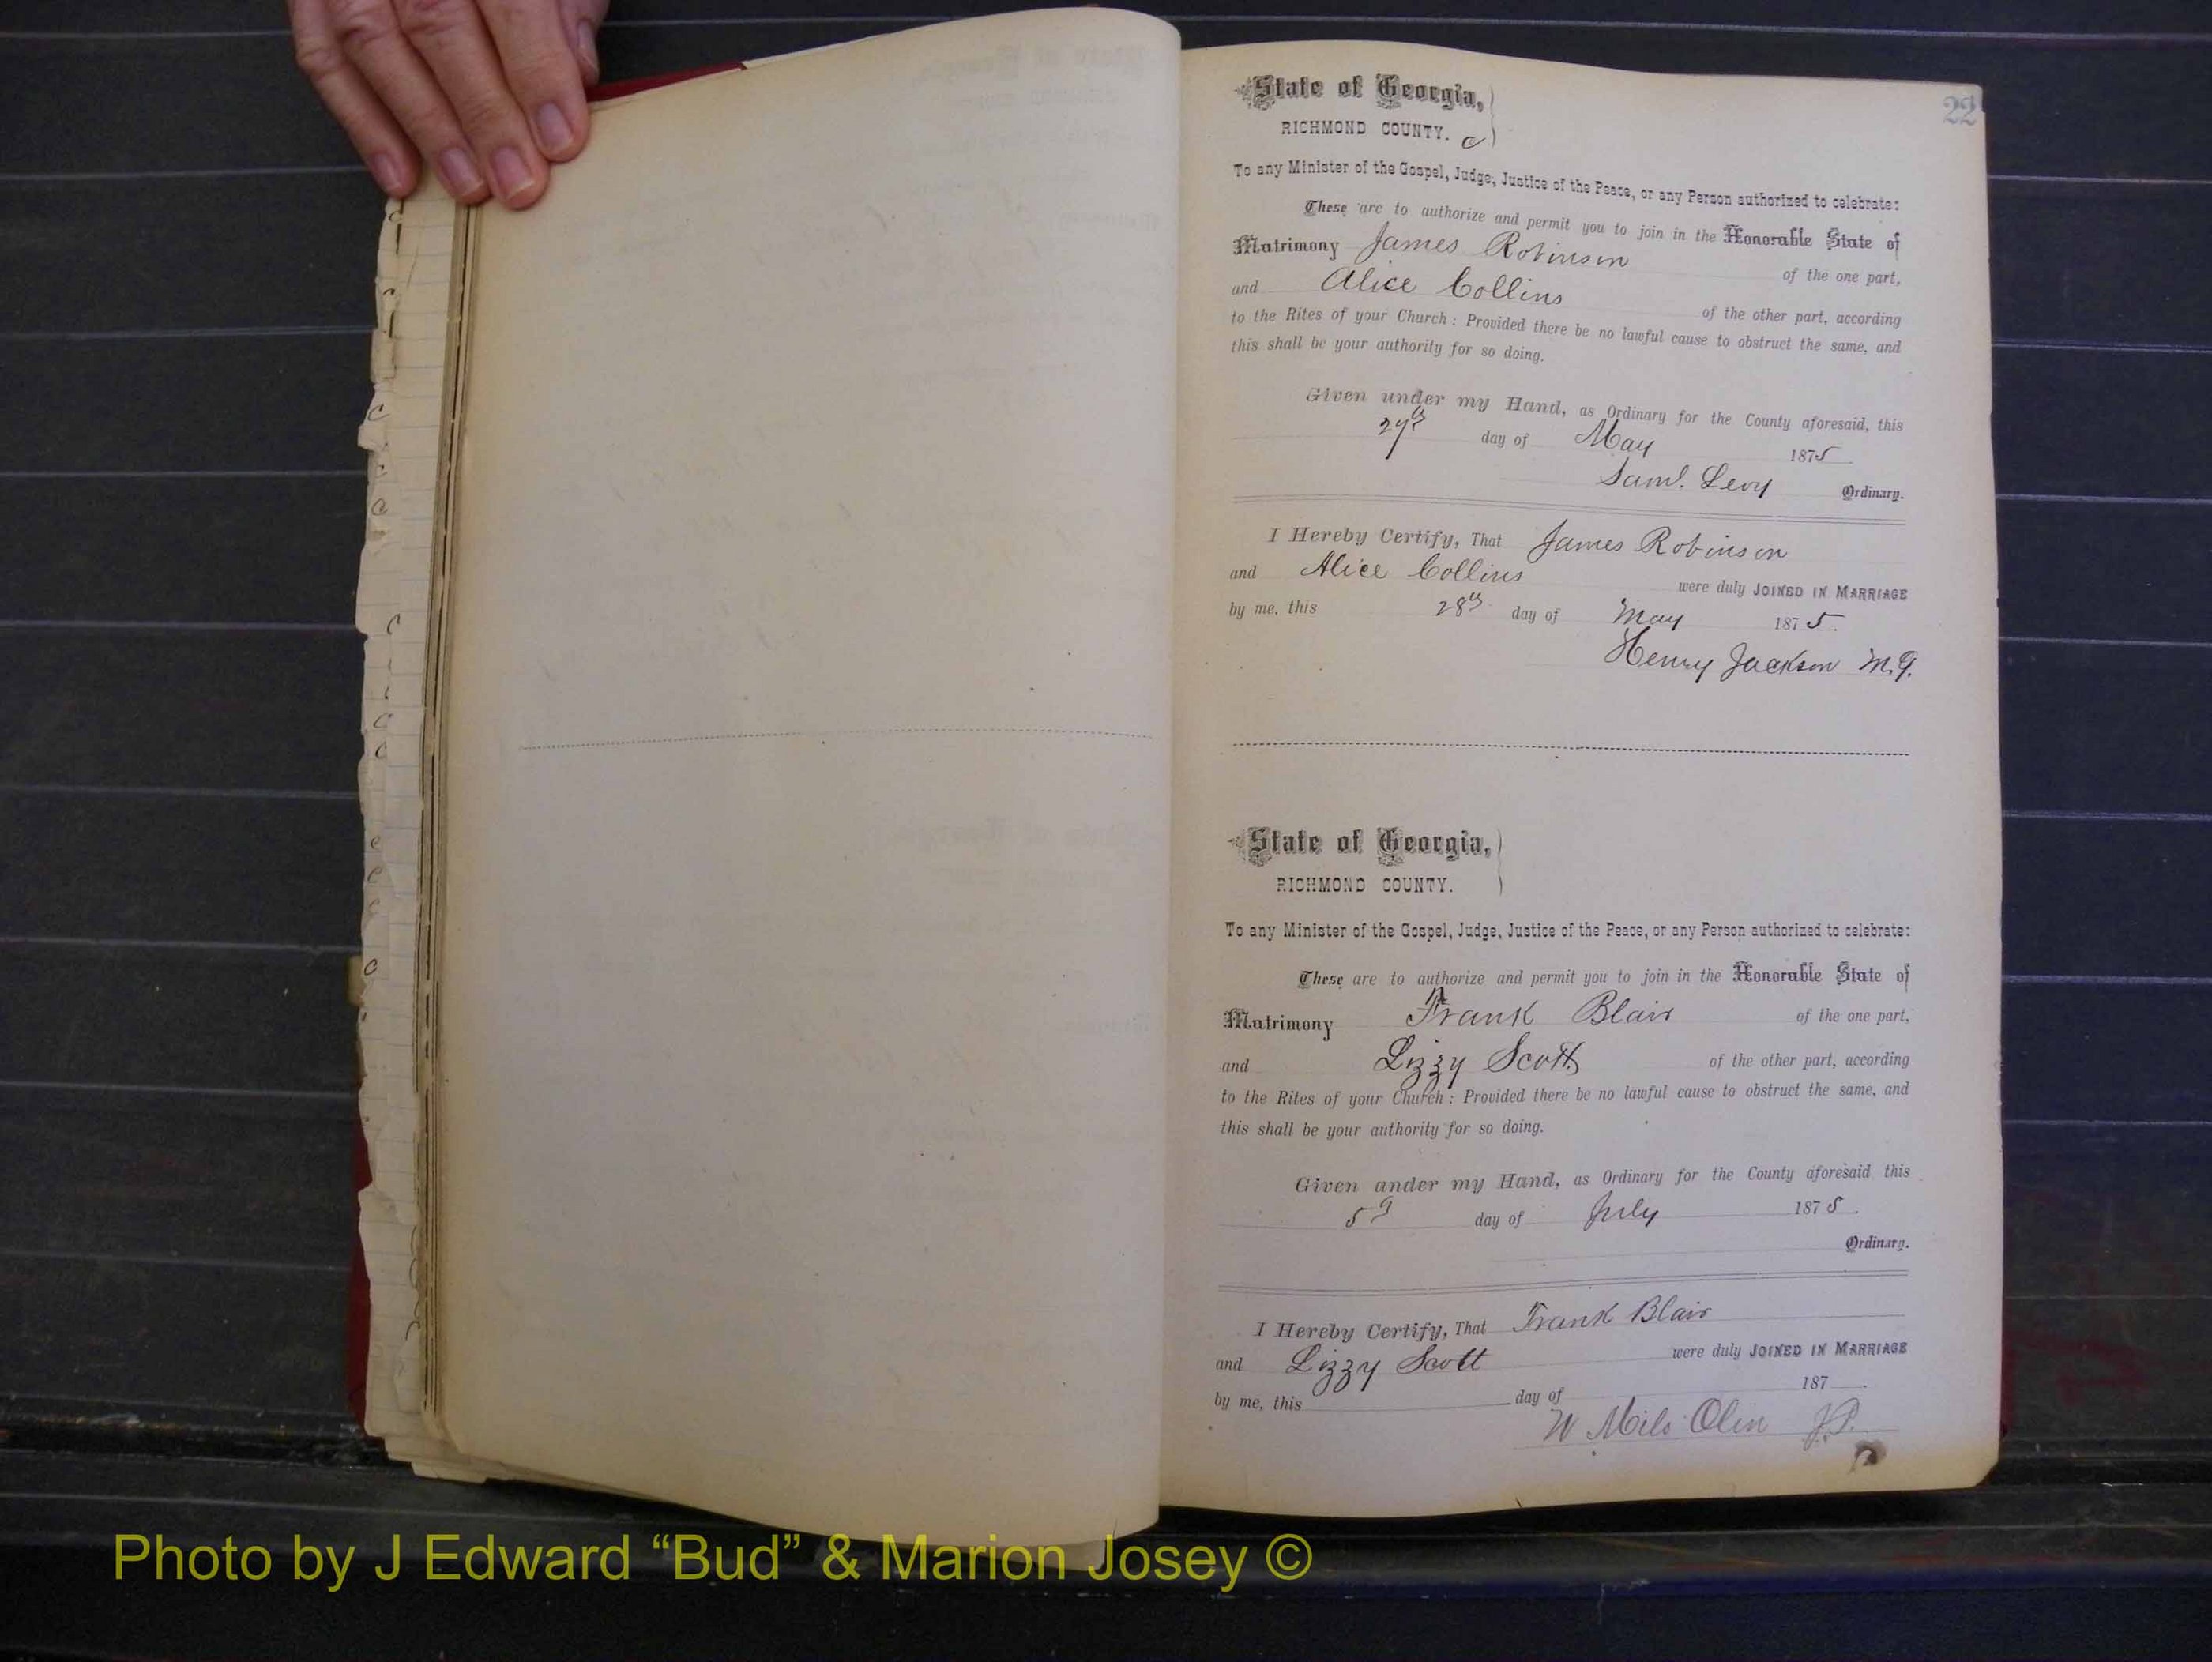 22
State of Georgia,
RICHMOND COUNTY. C
To any Minister of the Gospel, Judge, Justice of the Peace, or any Person authorized to celebrate:
These are to authorize and permit you to join in the Honorable State of
Matrimony James Robinson of the one part,
and Alice Collins of the other part, according
to the Rites of your Church: Provided there be no lawful cause to obstruct the same, and
this shall be your authority for so doing.
Given under my Hand, as Ordinary for the County aforesaid, this
27th day of May 1875
Saml. Levy Ordinary.
I Hereby Certify, That James Robinson
and Alice Collins were duly JOINED IN MARRIAGE
by me, this 28th day of May 1875.
Henry Jackson M.G.
State of Georgia,
RICHMOND COUNTY.
To any Minister of the Gospel, Judge, Justice of the Peace, or any Person authorized to celebrate:
These are to authorize and permit you to join in the Honorable State of
Matrimony Frank Blair of the one part,
and Lizzy Scott of the other part, according
to the Rites of your Church: Provided there be no lawful cause to obstruct the same, and
this shall be your authority for so doing.
Given under my Hand, as Ordinary for the County aforesaid this
5th day of July 1875.
Ordinary.
I Hereby Certify, That Frank Blair
and Lizzy Scott were duly JOINED IN MARRIAGE
by me, this day of 187 .
W Milo Olin J.P.
Photo by J Edward “Bud” & Marion Josey ©